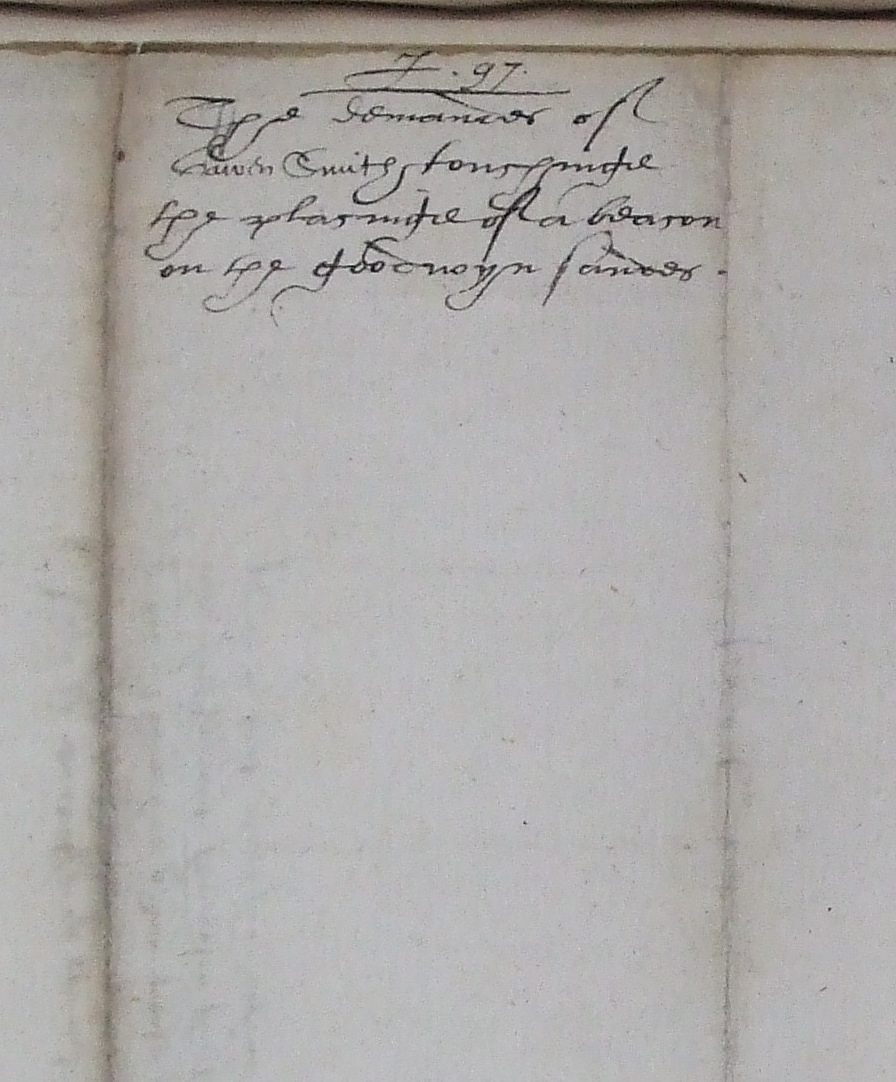 7. 97.
The demandes of
Gawen Smith, touchinge
the placinge of a beacon
on the goodwyn sandes.